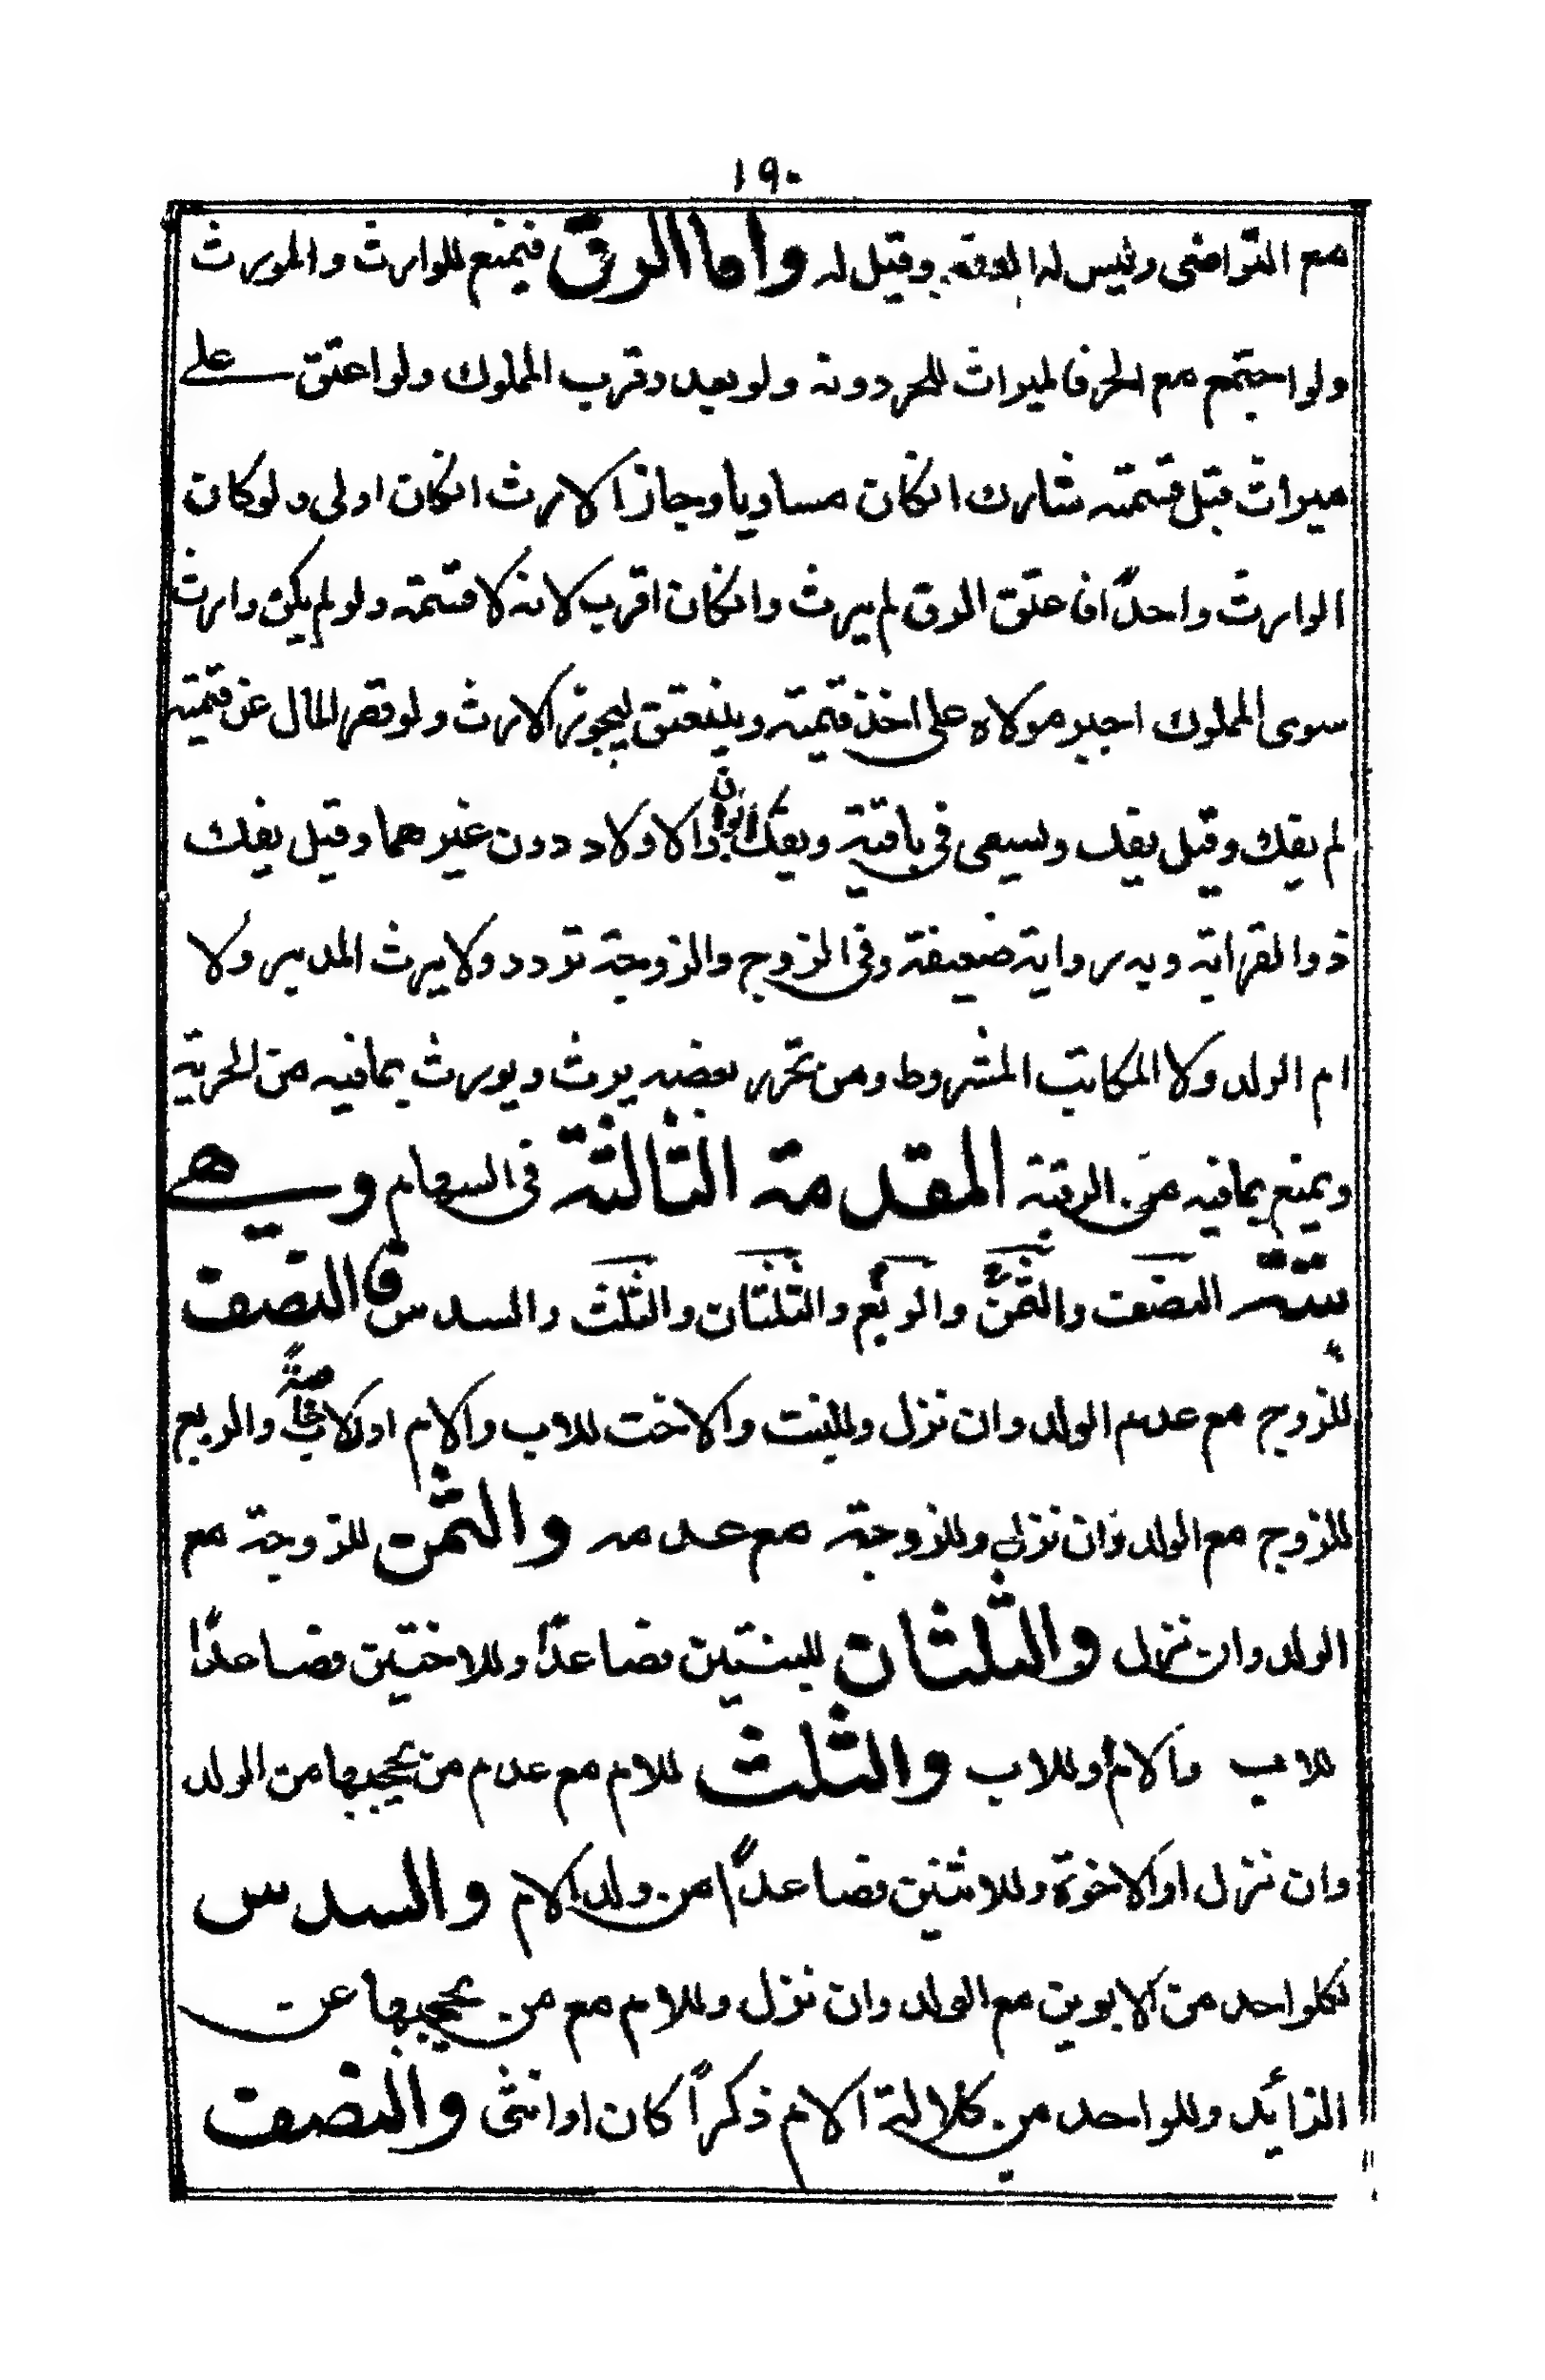 ١٩٠
مع التراضى وليس له العفو وقيل له واما الرق فيمنع للوارث والمورث
ولو اجتمع مع الحر فالميراث للحر دونه ولو بعد وقرب المملوك ولو اعتق على
ميراث قبل قسمته شارك انكان مساويا وحاز الارث انكان اولى ولو كان
الوارث واحدًا فاعتق الرق لم يرث وانكان اقرب لانه لا قسمته ولو لم يكن وارث
سوى المملوك اجبر مولاه على اخذ قيمته وينعتق ليحوز الارث ولو قصر المال عن قيمته
لم يفك وقيل يفك ويسعى فى باقيه ويفك الابوان والاولاد دون غيرهما وقيل يفك
ذو القرابة وبه رواية ضعيفة وفى الزوج والزوجة تردد ولا يرث المدبر ولا
ام الولد ولا المكاتب المشروط ومن تحرر بعضه يرث ويورث بمافيه من الحرية
ويمنع بمافيه من الرقية المقدمة الثالثة فى السهام وهى
ستة النصف والثمن والربع والثلثان والثلث والسدس فالنصف
للزوج مع عدم الولد وان نزل وللبنت والاخت للاب والام او للاب خاصةً والربع
للزوج مع الولد وان نزل وللزوجة مع عدمه والثمن للزوجة مع
الولد وان نزل والثلثان للبنتين فصاعدًا وللاختين فصاعدًا
للاب والام او للاب والثلث للام مع عدم من يحجبها من الولد
وان نزل او الاخوة وللاثنين فصاعدًا من ولد الام والسدس
لكلواحد من الابوين مع الولد وان نزل وللام مع من يحجبها عن
الزائد وللواحد من كلالة الام ذكراً كان او انثى والنصف